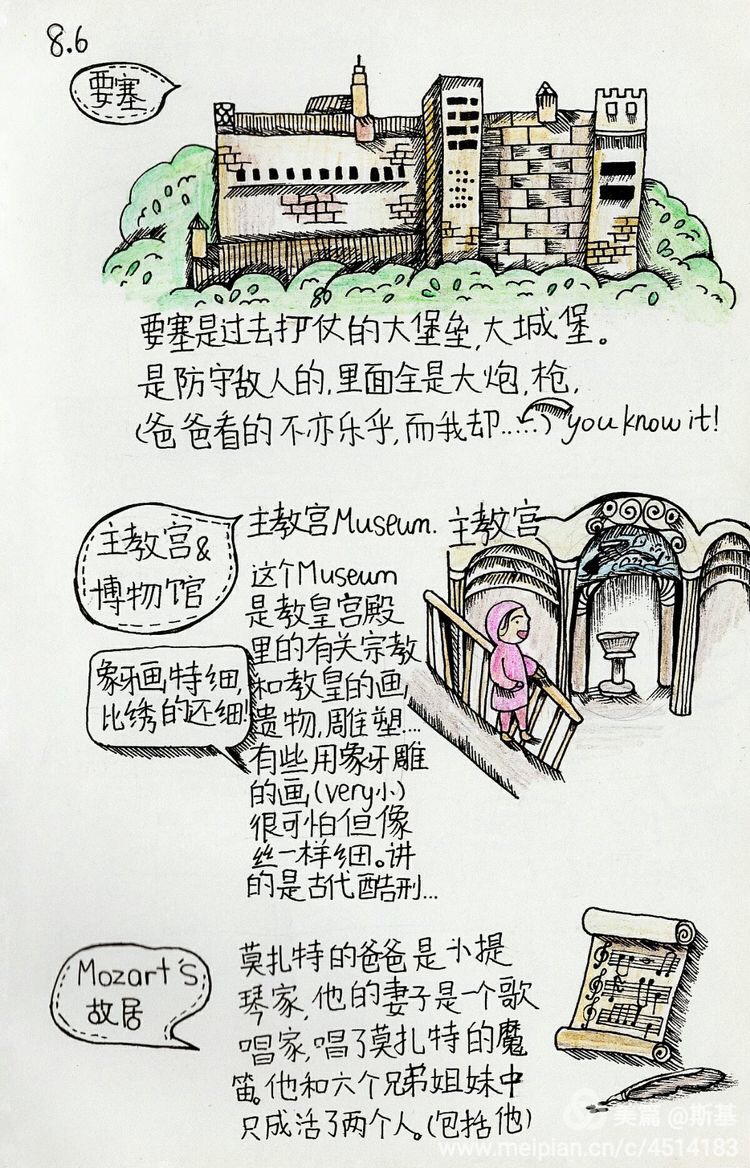 8.6
要塞
要塞是过去打仗的大堡垒,大城堡。
是防守敌人的,里面全是大炮,枪,
(爸爸看的不亦乐乎,而我却……)you know it!
主教宫&
博物馆
主教宫Museum. 主教宫
这个Museum
是教皇宫殿
里的有关宗教
和教皇的画,
遗物,雕塑....
有些用象牙雕
的画,(very小)
很可怕但像
丝一样细。讲
的是古代酷刑...
象牙画,特细,
比绣的还细!
Mozart's
故居
莫扎特的爸爸是小提
琴家,他的妻子是一个歌
唱家,唱了莫扎特的魔
笛。他和六个兄弟姐妹中
只成活了两个人。(包括他)
美篇 @斯基
www.meipian.cn/c/4514183